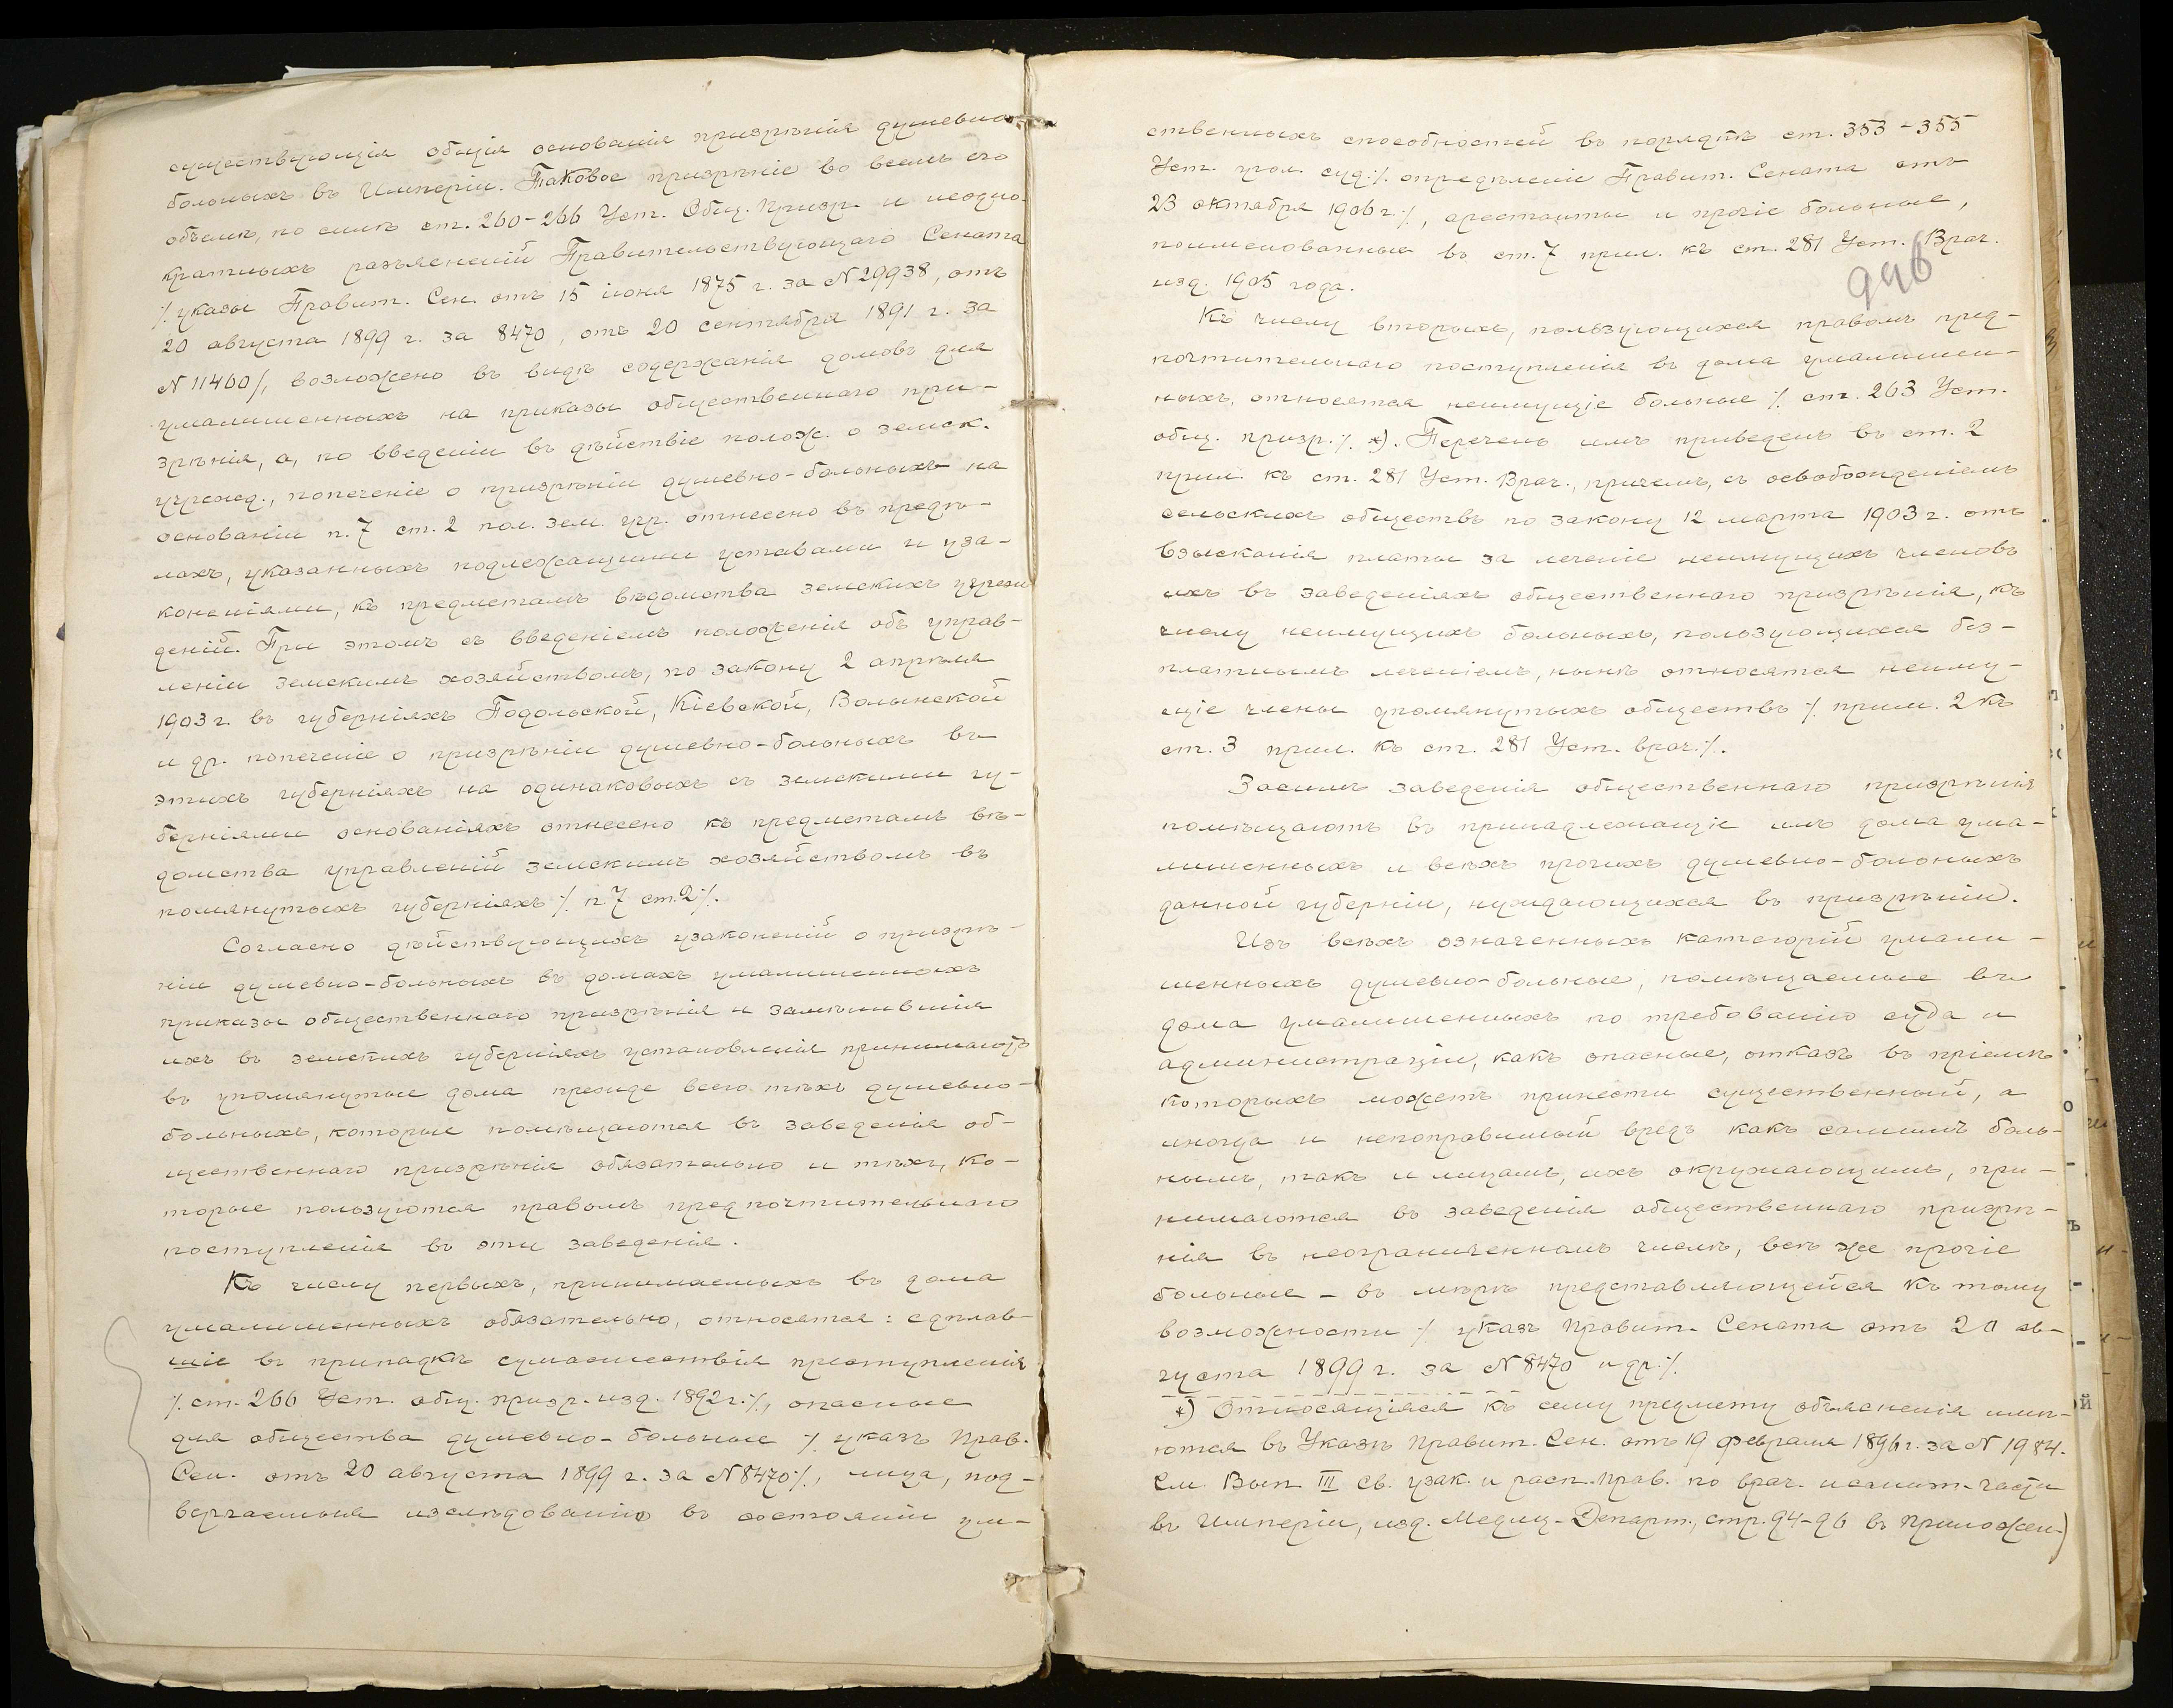 существующія общія основанія призрѣнія душевно-
больныхъ въ Имперіи. Таковое призрѣніе во всемъ его
объемѣ, по силѣ ст. 260-266 Уст. Общ. Призр. и неодно-
кратныхъ разъясненій Правительствующаго Сената
/. указы Правит. Сен. отъ 15 іюня 1875 г. за № 29938, отъ
20 августа 1899 г. за 8470, отъ 20 сентября 1891 г. за
№ 11460/., возложено въ видѣ содержанія домовъ для
умалишенныхъ на приказы общественнаго при-
зрѣнія, а, по введеніи въ дѣйствіе полож. о земск.
учрежд., попеченіе о призрѣніи душевно-больныхъ на
основаніи п. 7 ст. 2 пол. зем. учр. отнесено въ предѣ-
лахъ, указанныхъ подлежащими уставами и уза-
коненіями, къ предметамъ вѣдомства земскихъ учреж-
деній. При этомъ съ введеніемъ положенія объ управ-
леніи земскимъ хозяйствомъ, по закону 2 апрѣля
1903 г. въ губерніяхъ Подольской, Кіевской, Волынской
и др. попеченіе о призрѣніи душевно-больныхъ въ
этихъ губерніяхъ на одинаковыхъ съ земскими гу-
берніями основаніяхъ отнесено къ предметамъ вѣ-
домства управленій земскимъ хозяйствомъ въ
помянутыхъ губерніяхъ /. п 7 ст. 2 /.
Согласно дѣйствующихъ узаконеній о призрѣ-
ніи душевно-больныхъ въ домахъ умалишенныхъ
приказы общественнаго призрѣнія и замѣнившія
ихъ въ земскихъ губерніяхъ установленія принимаютъ
въ упомянутые дома прежде всего тѣхъ душевно-
больныхъ, которые помѣщаются въ заведенія об-
щественнаго призрѣнія обязательно и тѣхъ, ко-
торые пользуются правомъ предпочтительнаго
поступленія въ эти заведенія.
Къ числу первыхъ, принимаемыхъ въ дома
умалишенныхъ обязательно, относятся: сдѣлав-
шіе въ припадкѣ сумасшествія преступленія
/. ст. 266 Уст. общ. призр. изд. 1892 г. /., опасные
для общества душевно-больные /. указъ Прав.
Сен. отъ 20 августа 1899 г. за № 8470 /., лица, под-
вергаемыя изслѣдованію въ состояніи ум-
ственныхъ способностей въ порядкѣ ст. 353-355
Уст. угол. суд. /. опредѣленіе Правит. Сената отъ
23 октября 1906 г. /., арестанты и прочіе больные,
поименованные въ ст. 7 прил. къ ст. 281 Уст. Врач.
996
изд. 1905 года.
Къ числу вторыхъ, пользующихся правомъ пред-
почтительнаго поступленія въ дома умалишен-
ныхъ, относятся неимущіе больные /. ст. 263 Уст.
общ. призр. /. *). Перечень имъ приведенъ въ ст. 2
прил. къ ст. 281 Уст. Врач., причемъ, съ освобожденіемъ
сельскихъ обществъ по закону 12 марта 1903 г. отъ
взысканія платы за леченіе неимущихъ членовъ
ихъ въ заведеніяхъ общественнаго призрѣнія, къ
числу неимущихъ больныхъ, пользующихся без-
платнымъ леченіемъ, нынѣ относятся неиму-
щіе члены упомянутыхъ обществъ /. прим. 2 къ
ст. 3 прил. къ ст. 281 Уст. врач. /.
Засимъ заведенія общественнаго призрѣнія
помѣщаютъ въ принадлежащіе имъ дома ума-
лишенныхъ и всѣхъ прочихъ душевно-больныхъ
данной губерніи, нуждающихся въ призрѣніи.
Изъ всѣхъ означенныхъ категорій умали-
шенныхъ душевно-больные, помѣщаемые въ
дома умалишенныхъ по требованію суда и
администраціи, какъ опасные, отказъ въ пріемѣ
которыхъ можетъ принести существенный, а
иногда и непоправимый вредъ какъ самимъ боль-
нымъ, такъ и лицамъ, ихъ окружающимъ, при-
нимаются въ заведенія общественнаго призрѣ-
нія въ неограниченномъ числѣ, всѣ же прочіе
больные - въ мѣрѣ представляющейся къ тому
возможности /. указъ Правит. Сената отъ 20 ав-
густа 1899 г. за № 8470 и др. /.
*) Относящіяся къ сему предмету объясненія имѣ-
ются въ Указѣ Правит. Сен. отъ 19 февраля 1896 г. за № 1984.
См. Вып. III св. узак. и расп. прав. по врач. и санит. части
въ Имперіи, изд. Медиц. Департ., стр. 94-96 въ приложен.)